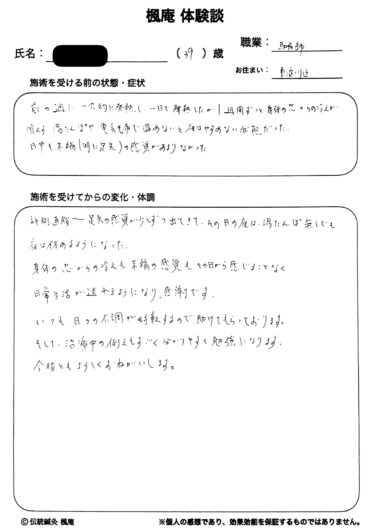 楓庵 体験談
氏名：
（39）歳
職業：
お住まい：
施術を受ける前の状態・症状
前の週に一次的に発熱し、一日で解熱したが1週間ずっと身体の芯からの冷えが
消えず 湯たんぽや電気毛布で温めないと夜はやすめない状態だった。
日中も末梢(特に足先)の感覚があまりなかった
施術を受けてからの変化・体調
施術直後〜足先の感覚が少しずつ出てきて、その日の夜は、湯たんぽ無しでも
夜は休めるようになった。
身体の芯からの冷えも末梢の感覚も その日から感じることなく
日常生活が送れるようになり、感謝です。
いつも日々の不調が好転するので助けてもらっております。
そして、治療中の例えもすごく分かりやすく勉強になります。
今後ともよろしくおねがいします。
© 伝統鍼灸 楓庵
※個人の感想であり、効果効能を保証するものではありません。